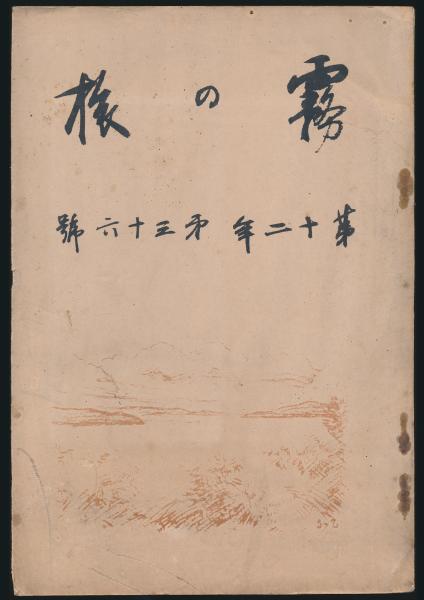 霧の旅
第十二年 第三十六號